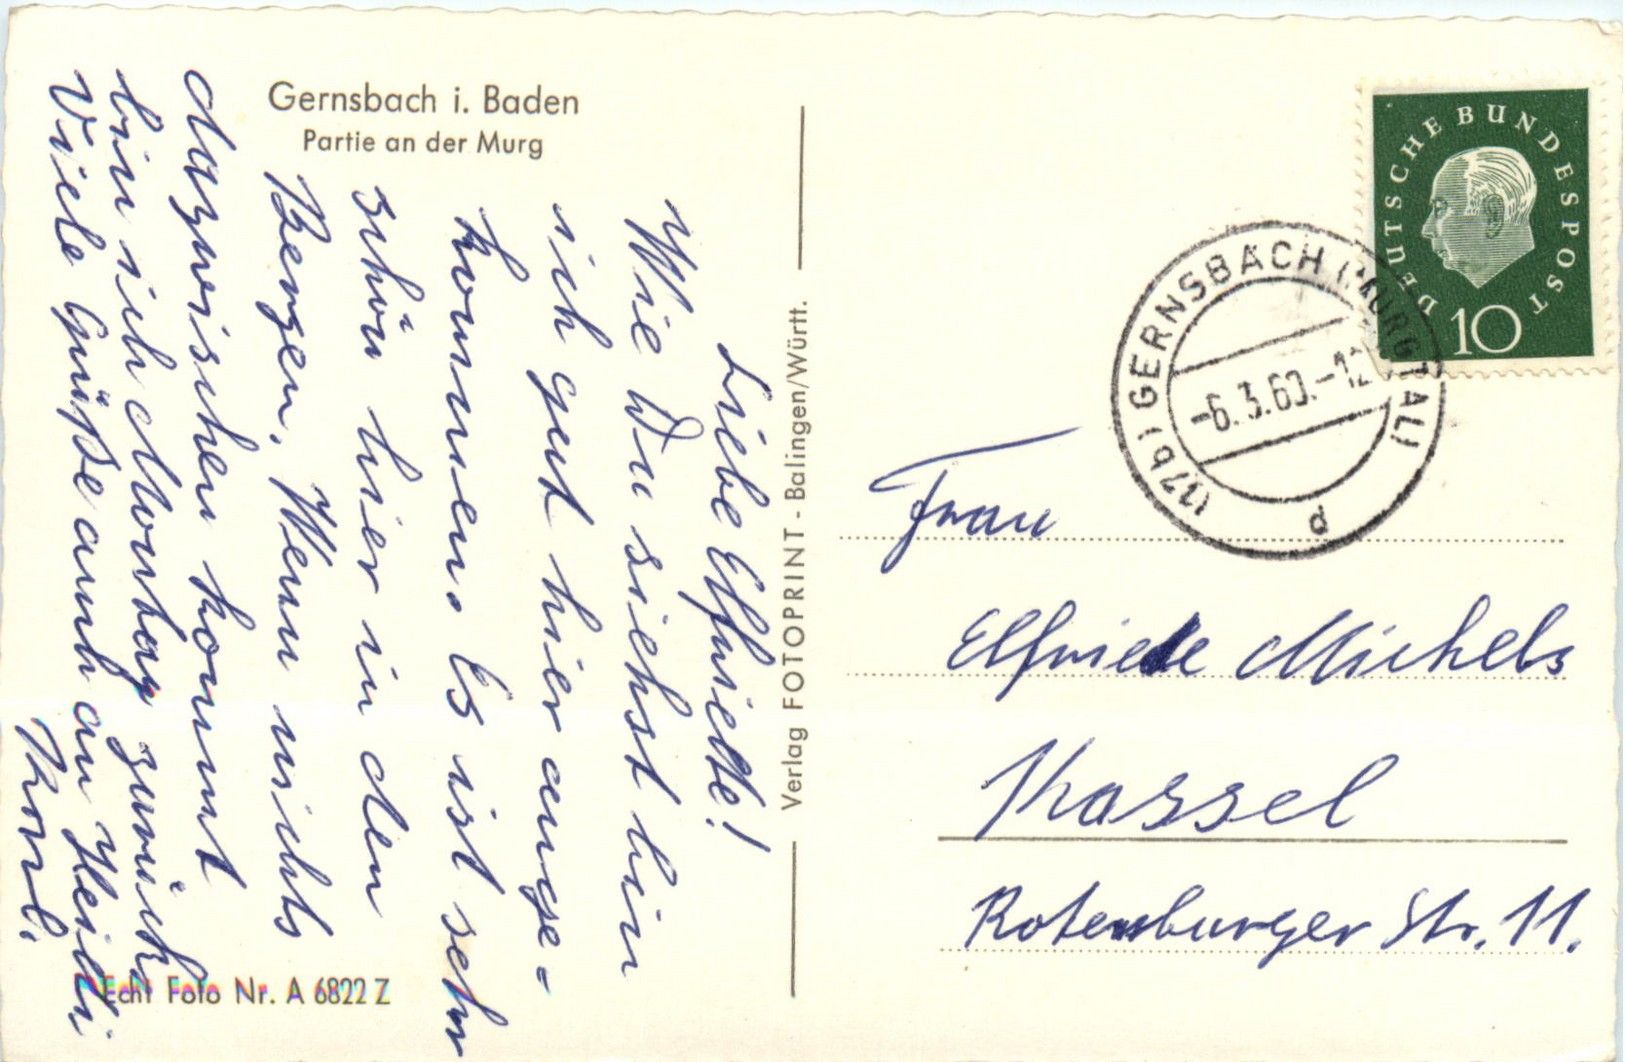 Gernsbach i. Baden
Partie an der Murg
Liebe Elfriede!
Wie Du siehst bin
ich gut hier ange=
kommen. Es ist sehr
schön hier in den
Bergen. Wenn nichts
dazwischen kommt
bin ich Montag zurück.
Viele Grüße auch an Heidi
Karl.
Echt Foto Nr. A 6822 Z
Verlag FOTOPRINT - Balingen/Württ.
DEUTSCHE BUNDESPOST
10
(17b) GERNSBACH (MURGTAL)
-6.3.60.-12
d
Frau
Elfriede Michels
Kassel
Rotenburger Str. 11.